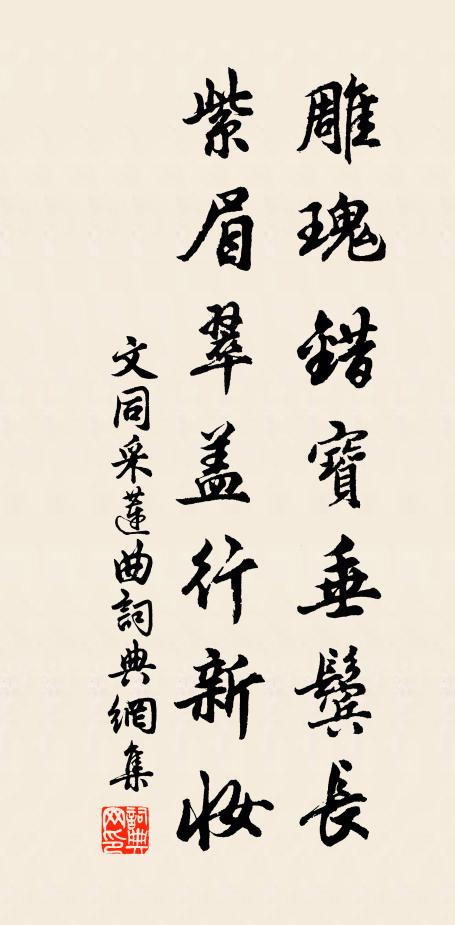 雕瑰錯寶垂鬓長
紫眉翠盖行新妝
文同采蓮曲詞典網集
詞典網印